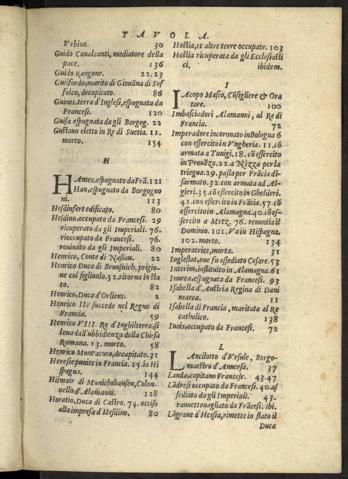 TAVOLA.
Vrbina. 30
Guido Canalcanti, mediatore della
pace. 136
Guido Rangone. 22.23
Guifordo, marito di Giouāna di Sof
folco, decapitato. 86
Guines, terra d'Inglesi, espugnata da
Francesi. 120
Guisa espugnata dagli Borgog. 22
Gustano eletto in Re di Suetia. 11.
morto. 154
H
HAmes, espugnato da Frā. 121
Han, espugnato da Borgogno
ni. 113
Hesdinfert edificato. 80
Hesdino, occupato da Francesi. 29
ricuperato da gli Imperiali. 76.
rioccupato da Francesi. 76.
rouinato da gli Imperiali. 80
Henrico, Conte di Nassau. 22
Henrico Duca di Brunsuich, prigio-
ne col figliuolo. 52. ritorna in sta
to. 82
Henrico, Duca d'Orliens. 2
Henrico II. succede nel Regno di
Francia. 59
Henrico VIII. Re d'Inghilterra, si
leua dall'ubbidienza della Chiesa
Romana. 13. morto. 58
Henrico Mont'acuto, decapitato. 31
Heresie punite in Francia. 15. in Hi
spagna. 144
Hilmair di Munichuhausen, Colon-
nello d'Alamanni. 128
Horatio, Duca di Castro. 74. occiso
alla impresa d'Hesdino. 80
Hostia, et altre terre occupate. 103
Hostia ricuperata da gli Ecclesiasti
ci. ibidem.
I
IAcopo Masio, Cōsigliere & Ora
tore. 100
Imbasciadori Alamanni, al Re di
Francia. 72
Imperadore incoronato in Bologna 6
con essercito in Vngheria. 11. cō
armata a Tunigi. 18. cō essercito
in Prouēza. 22. a Nizza per la
triegua. 29. passa per Frācia di-
sarmato. 32. con armata ad Al-
gieri. 35. cō essercito in Gheldieri.
41. con essercito in Frācia. 57. cō
essercito in Alamagna. 40. cō es-
sercito a Metz. 76. renuntia il
Dominio. 101. Va in Hispagna.
102. morto. 134
Imperatrice, morta. 31
Inglestat, oue fu assediato Cesare. 53
Interim, instituito in Alamagna. 61
Inurea, espugnata da Francesi. 93
Isabella d'Austria Regina di Dani
marca. 11
Isabella di Francia, maritata al Re
catholico. 138
Iuois, occupato da Francesi. 72
L
LAncilotto d'Vrsule, Borgo-
mastro d'Anuersa. 37
Landa, capitano Francese. 43.47
Lādresi occupato da Francesi. 40. as
sediato dagli Imperiali. 43.
rauuettouagliato da Frācesi. ibi.
Lāgrane d'Hessia, rimette in stato il
Duca